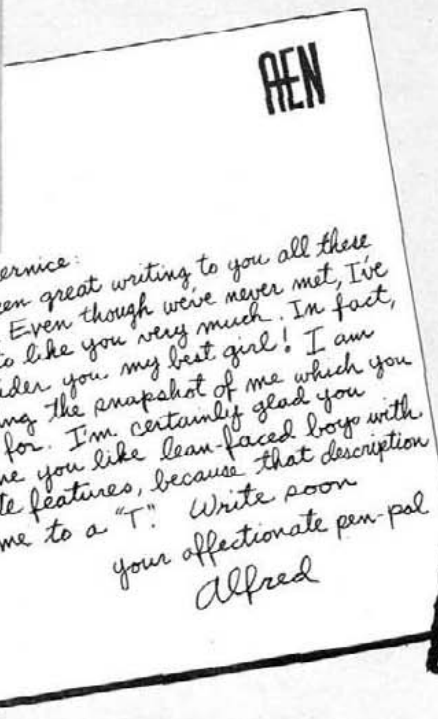 AEN
ernice:
een great writing to you all these
. Even though we've never met, I've
to like you very much. In fact,
ider you my best girl! I am
ing the snapshot of me which you
for. I'm certainly glad you
me you like lean-faced boys with
te features, because that description
me to a "T". Write soon
your affectionate pen-pal
Alfred